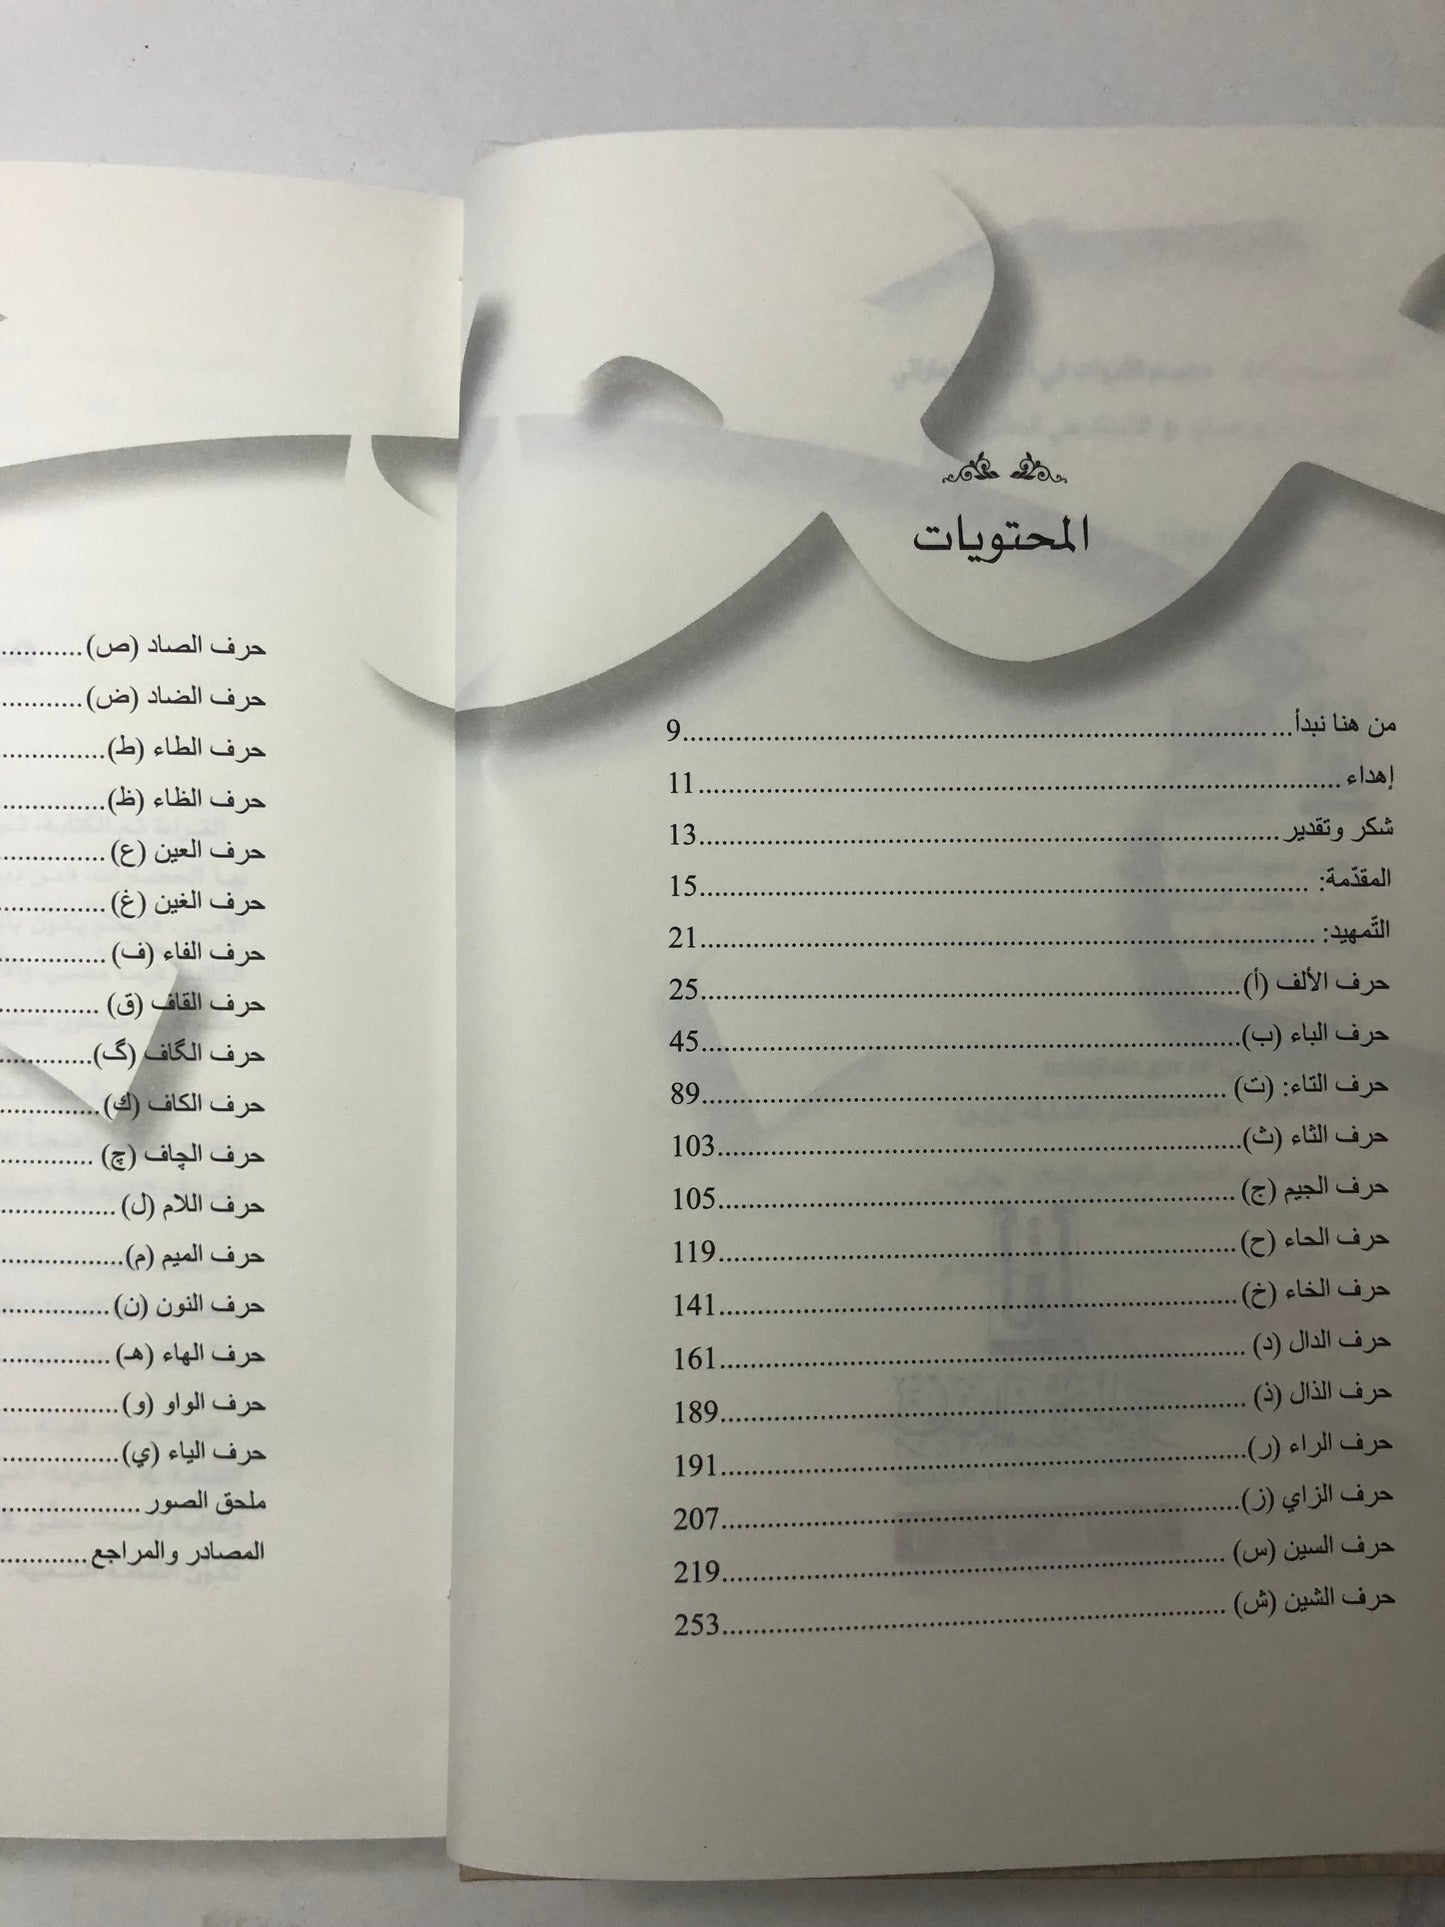 المحتويات
من هنا نبدأ...................9
إهداء...................11
شكر وتقدير...................13
المقدّمة: ...................15
التّمهيد: ...................21
حرف الألف (أ)...................25
حرف الباء (ب)...................45
حرف التاء: (ت) ...................89
حرف الثاء (ث)...................103
حرف الجيم (ج) ...................105
حرف الحاء (ح) ...................119
حرف الخاء (خ) ...................141
حرف الدال (د) ...................161
حرف الذال (ذ) ...................189
حرف الراء (ر)...................191
حرف الزاي (ز)...................207
حرف السين (س) ...................219
حرف الشين (ش) ...................253
حرف الصاد (ص)............
حرف الضاد (ض)............
حرف الطاء (ط)............
حرف الظاء (ظ)............
حرف العين (ع) ............
حرف الغين (غ) ............
حرف الفاء (ف) ............
حرف القاف (ق) ............
حرف الگاف (گ)............
حرف الكاف (ك)............
حرف الچاف (چ) ............
حرف اللام (ل) ............
حرف الميم (م)............
حرف النون (ن) ............
حرف الهاء (هـ) ............
حرف الواو (و)............
حرف الياء (ي)............
ملحق الصور ............
المصادر والمراجع............